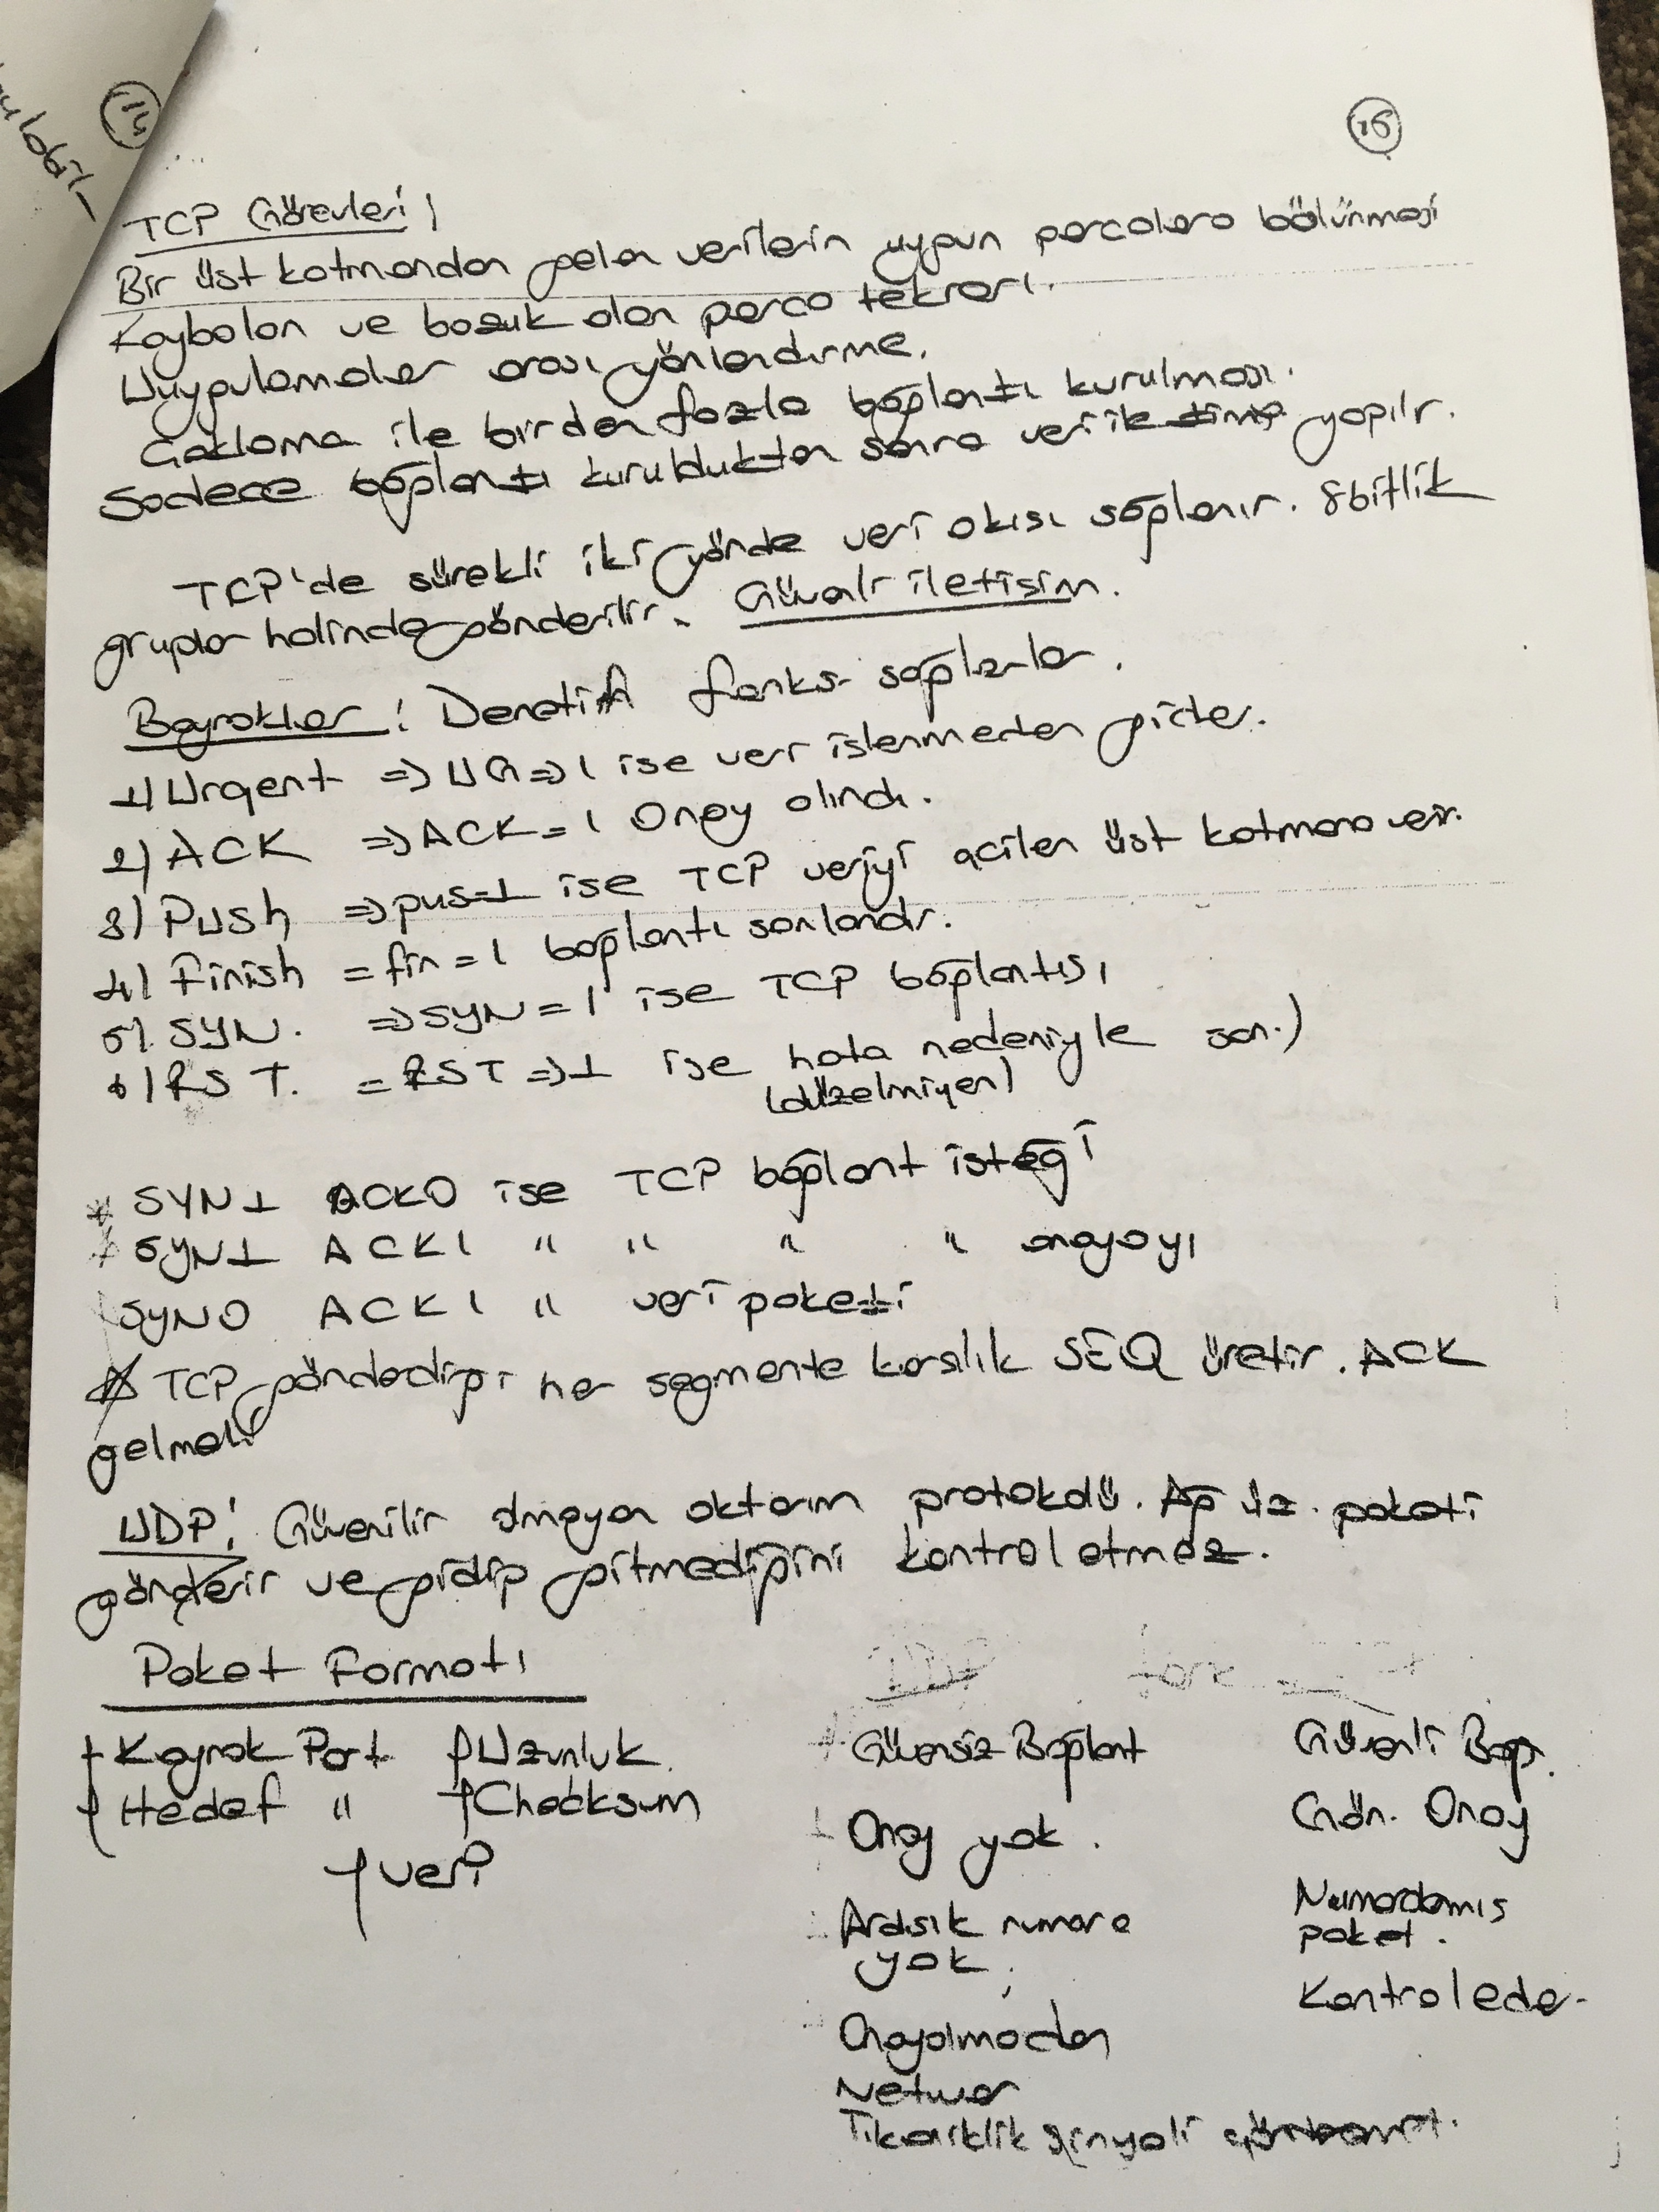 15
ulabil-
16
TCP Görevleri !
Bir üst katmandan gelen verilerin uygun parçalara bölünmesi
Kaybolan ve bozuk olan parça tekrarı.
Uygulamalar arası yönlendirme.
Çoklama ile birden fazla bağlantı kurulması.
Sadece bağlantı kurulduktan sonra veri iletimi yapılır.
TCP'de sürekli iki yönde veri akışı sağlanır. 8bitlik
gruplar halinde gönderilir. Güvenlr iletişim.
Bayraklar : Denetim fonks. sağlarlar.
1) Urgent => UG => 1 ise veri işlenmeden gider.
2) ACK => ACK = 1 Onay alındı.
3) Push => pus=1 ise TCP veriyi acilen üst katmana verir.
4) Finish = fin = 1 bağlantı sonlandır.
5) SYN. => SYN = 1 ise TCP bağlantısı
6) RST. = RST => 1 ise hata nedeniyle son.)
(düzelmiyen)
* SYN1 ACK0 ise TCP bağlant isteği
* SYN1 ACK1 " " " " onayayı
SYN0 ACK1 " veri paketi
* TCP gönderdiği her segmente karşılık SEQ üretir. ACK
gelmeli
UDP: Güvenilir olmayan aktarım protokolü. Ağ üz. paketi
gönderir ve gidip gitmediğini kontrol etmez.
Paket Formatı
UDP
+ Kaynak Port + Uzunluk
+ Hedef " + Checksum
+ veri
Güvensiz Bağlant Güvenli Bağ.
Onay yok. Gön. Onay
Ardışık numara Numaralamış
yok. paket.
Kontrol eder
Onayalmadan
Networ
Tıkanıklık sinyali